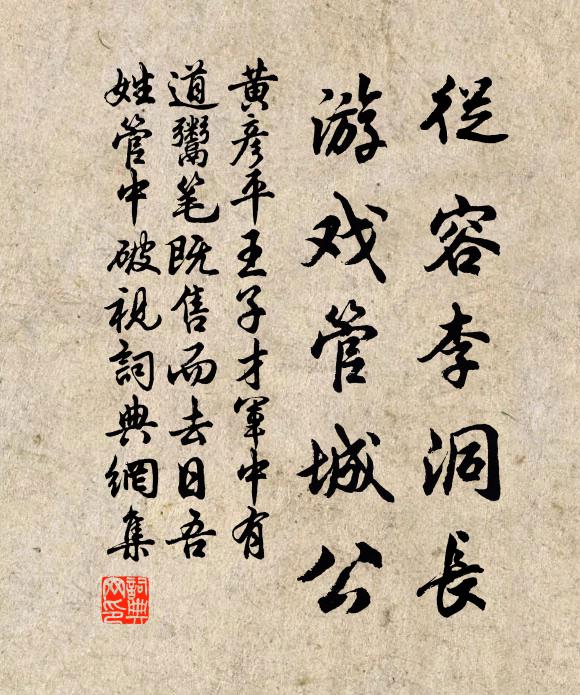 從容李洞長
游戏管城公
黄彦平王子才軍中有
道鬻笔既售而去日吾
姓管中破視詞典網集